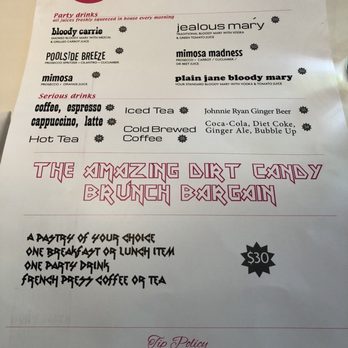 Party drinks
all juices freshly squeezed in house every morning
bloody carrie
SMOKED BLOODY MARY WITH MEZCAL
& GRILLED CARROT JUICE
jealous mary
TRADITIONAL BLOODY MARY WITH VODKA
& GREEN TOMATO JUICE
POOLSIDE BREEZE
PROSECCO SPRITZER • CILANTRO • CUCUMBER
mimosa madness
PROSECCO • CARROT / CUCUMBER /
OR BEET JUICE
mimosa
PROSECCO • ORANGE JUICE
plain jane bloody mary
YOUR STANDARD BLOODY MARY WITH VODKA & TOMATO JUICE
Serious drinks
coffee, espresso
cappuccino, latte
Hot Tea
Iced Tea
Cold Brewed
Coffee
Johnnie Ryan Ginger Beer
Coca-Cola, Diet Coke,
Ginger Ale, Bubble Up
THE AMAZING DIRT CANDY
BRUNCH BARGAIN
A PASTRY OF YOUR CHOICE
ONE BREAKFAST OR LUNCH ITEM
ONE PARTY DRINK
FRENCH PRESS COFFEE OR TEA
$30
Tip Policy